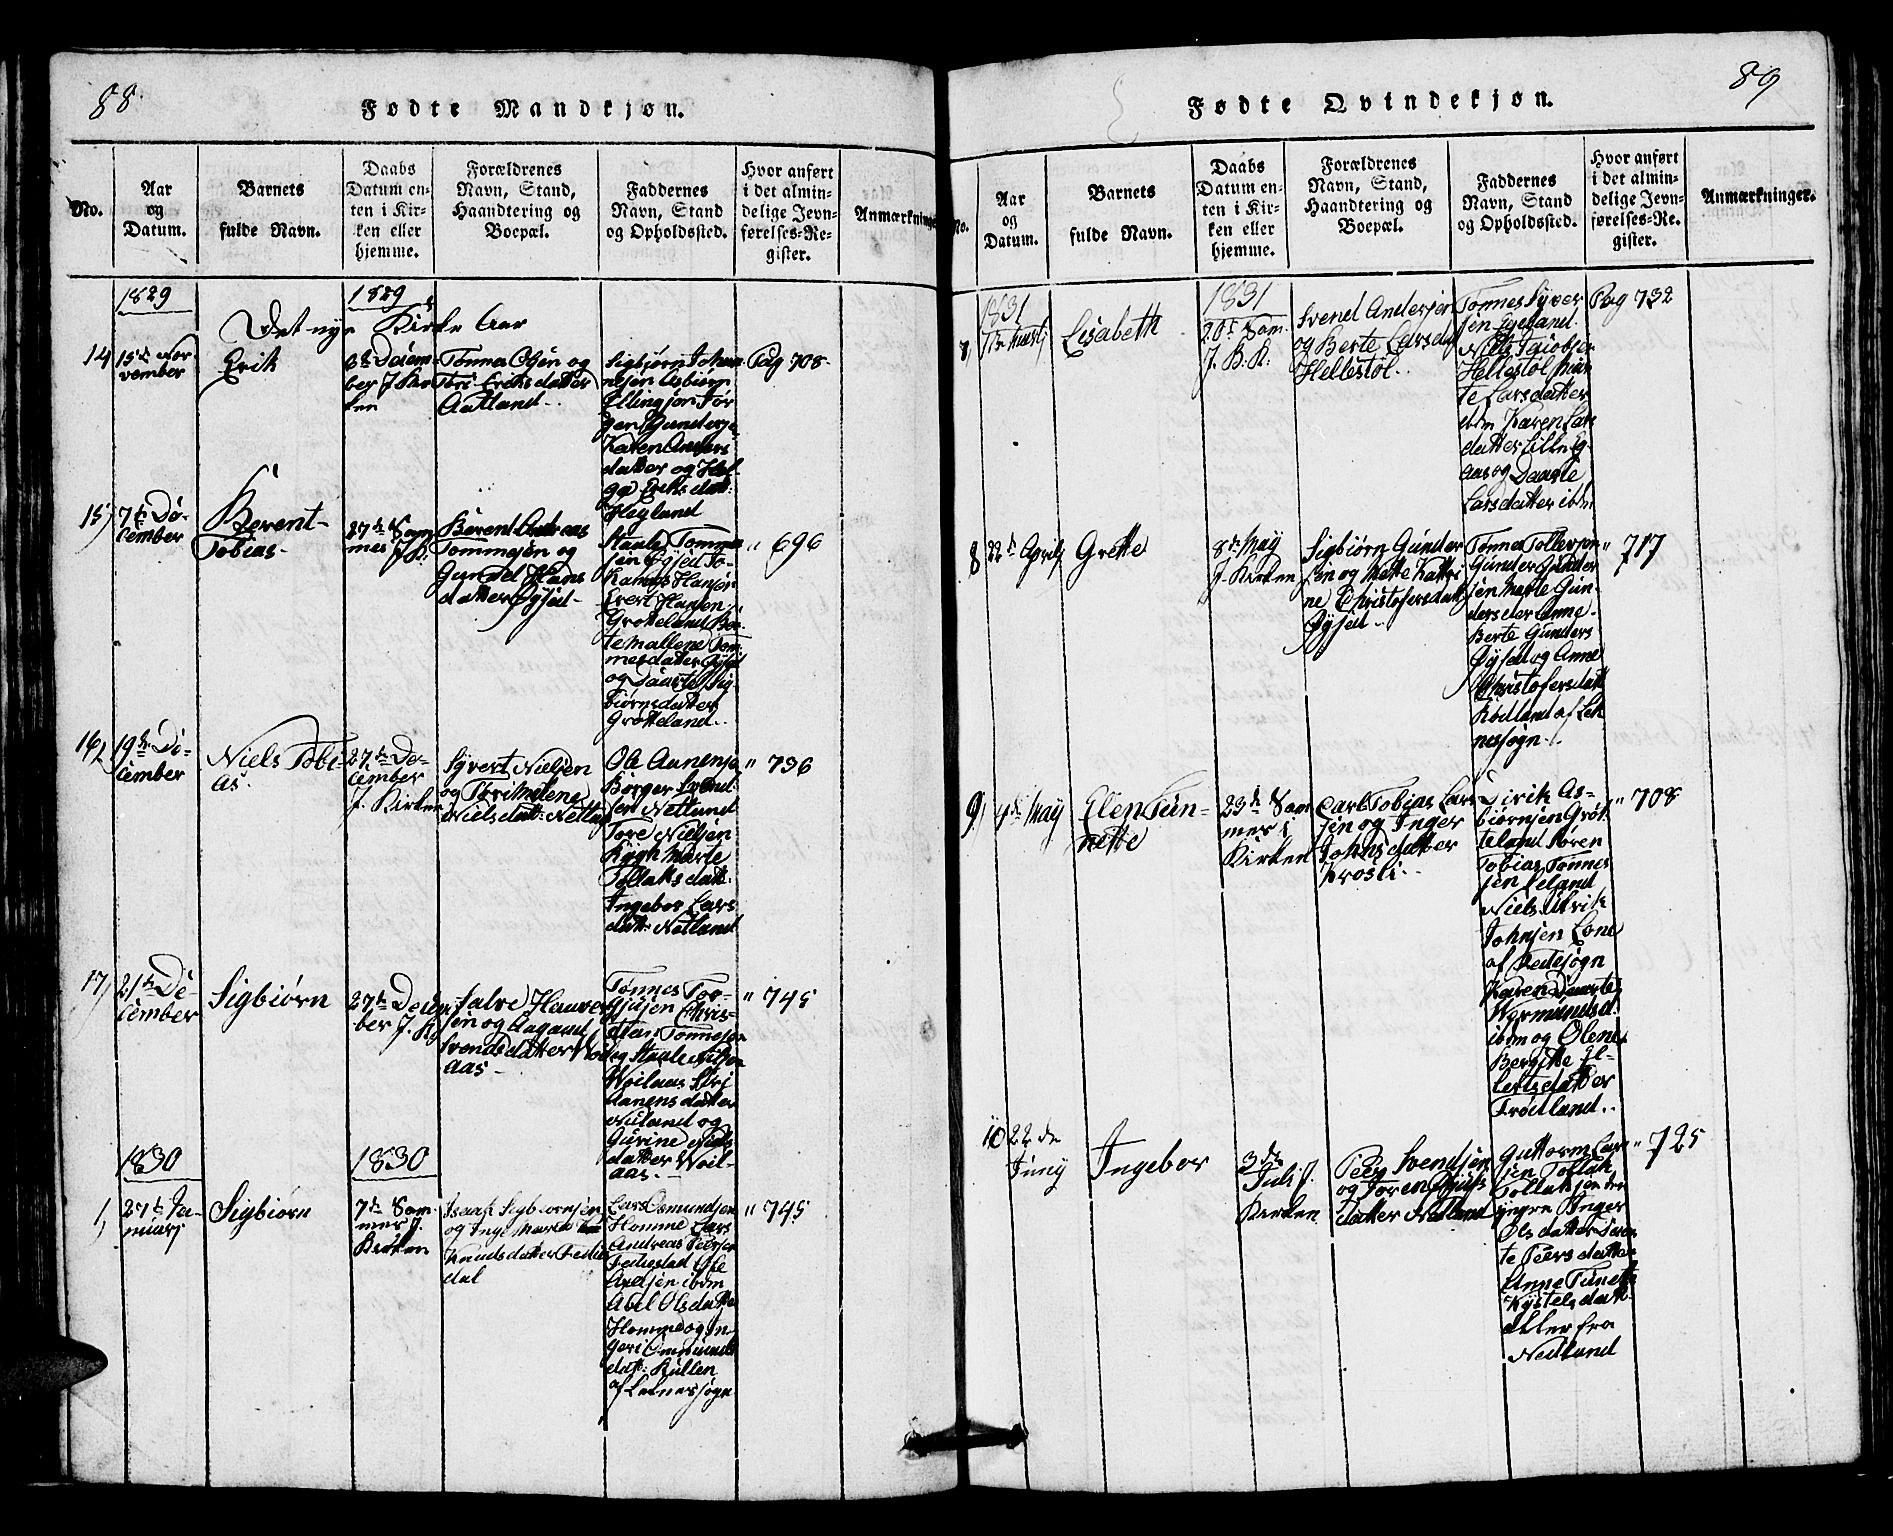 88.
Fødte Mandkjøn.
No.
Aar
og
Datum.
Barnets
fulde Navn.
Daabs
Datum en-
ten i Kir-
ken eller
hjemme.
Forældrenes
Navn, Stand,
Haandtering og
Boepæl.
Faddernes
Navn, Stand
og Opholdssted.
Hvor anført
i det almin-
delige Jevn-
førelses-Re-
gister.
Anmærkninger
1829
1829
Det nye Kirke Aar
14
15de No-
vember
Erik
6te Decem-
ber J. Kir-
ken
Tønnes Olsen og
Tori Eriksdatter
Aatland
Sigbjørn Johan-
nesen Asbiørn
Ellingsen Tor
Gunders
Karen Anders
datter og Hel-
ga Eriksdat:
Høyland
Pag 708
15,
7de De-
cember
Berent
Tobias
27de Som
mes J. K.
Berent Andreas
Tommesen og
Gundel Hans
datter Øysæd
Staale Tommes
sen Øysed To-
Hansen
Evert Hansen
Grotteland Ber-
te Mallene Tom
mesdatter Øysed
og Daarte Sig-
biørnsdatter
Grotteland.
" 696
16,
19de De-
cember
Niels Tobi-
as.
27de De-
cember
J. Kirken
Syvert Nielsen
og Tori Malene
Nielsdat: Netland
Ole Aanensen
Børger Svend-
sen Netland
Tore Nielsen
Marte
Tollaksdatt:
Ingebor Lars
datt: Netland
" 736
17,
21de De-
cember
Sigbiørn
27de Decem-
ber J. K.
Salve Hauver
sen og Aagaard
Svendsdatter
aas
Tønnes Tor-
gjusen Chris-
tian Tønnesen
og Staale Nilsen
Woilaas Siri
Aanensdatter
Nuland og
Gurine Niels
datter Woil-
aas.
" 745
1830
1830
1,
27de Ja-
nuary
Sigbiørn
7de Som
mer J.
Kirken
Isaak Sigbiørnsen
og Inge Maria
Knudsdatter Fedde
dal
Lars Osmundsen
Homme Lars
Andreas Peersen
Feddestad Ole
Axelsen ibm
Abel Olsdatter
Homme og In-
geri Ommunds
dat: Kullen
af Leknes sogn
" 745
89
Fødte Qvindekjøn.
No.
Aar
og
Datum.
Barnets
fulde Navn.
Daabs
Datum en-
ten i Kir-
ken eller
hjemme.
Forældrenes
Navn, Stand,
Haandtering og
Boepæl.
Faddernes
Navn, Stand
og Opholdssted.
Hvor anført
i det almin-
delige Jevn-
førelses-Re-
gister.
Anmærkninger.
1831
1831
7,
Lisabeth
20de Som.
J. K.
Svend Andersen
og Berte Larsdat
Hellestøl
Tønnes Syver
sen Egeland
Niels Jacobsen
Hellestøl
te Larsdatter
ibm Karen Lars
datter Lille Eg-
aas og Daarte
Larsdatter ibm
Pag 732
8
22de April
Grette
8de May
J. Kirken
Sigbiørn Gunder
sen og Mette Katri
ne Christofersdatt
Øysed
Tønnes Tollevsen
Gunder Gunder
sen Marte Gun-
dersdatter Anne
Berte Gunders
Øysed og Anne
Christofersdatt
Rødland af Lek
nessogn
" 717
9,
4de May
Elen Tün-
nette
23de Som
mer i
Kirken
Carl Tobias Lars
sen og Inger
Johnsdatter
Krosli
Dirik As-
biørnsen Grøt-
teland Søren
Tobias Tønnes
sen Leland
Niels Ulrik
Johnsen Lone
af Feddesogn
Karen Daarte
Wermundsd.
ibm og Olene
Bergitte El-
lertsdatter
Frøitland.
" 708
10
22de
Juny
Ingebor
3de
Juli J.
Kirken
Peer Svendsen
og Toren Gjus
datter Netland
Guttorm Lar-
sen Tollak
Tollaksen den
yngre Inger
Olsdatter Beren-
te Peersdatter
Anne Tünette
Kystelsdatt-
aller fra
Nedland
" 725